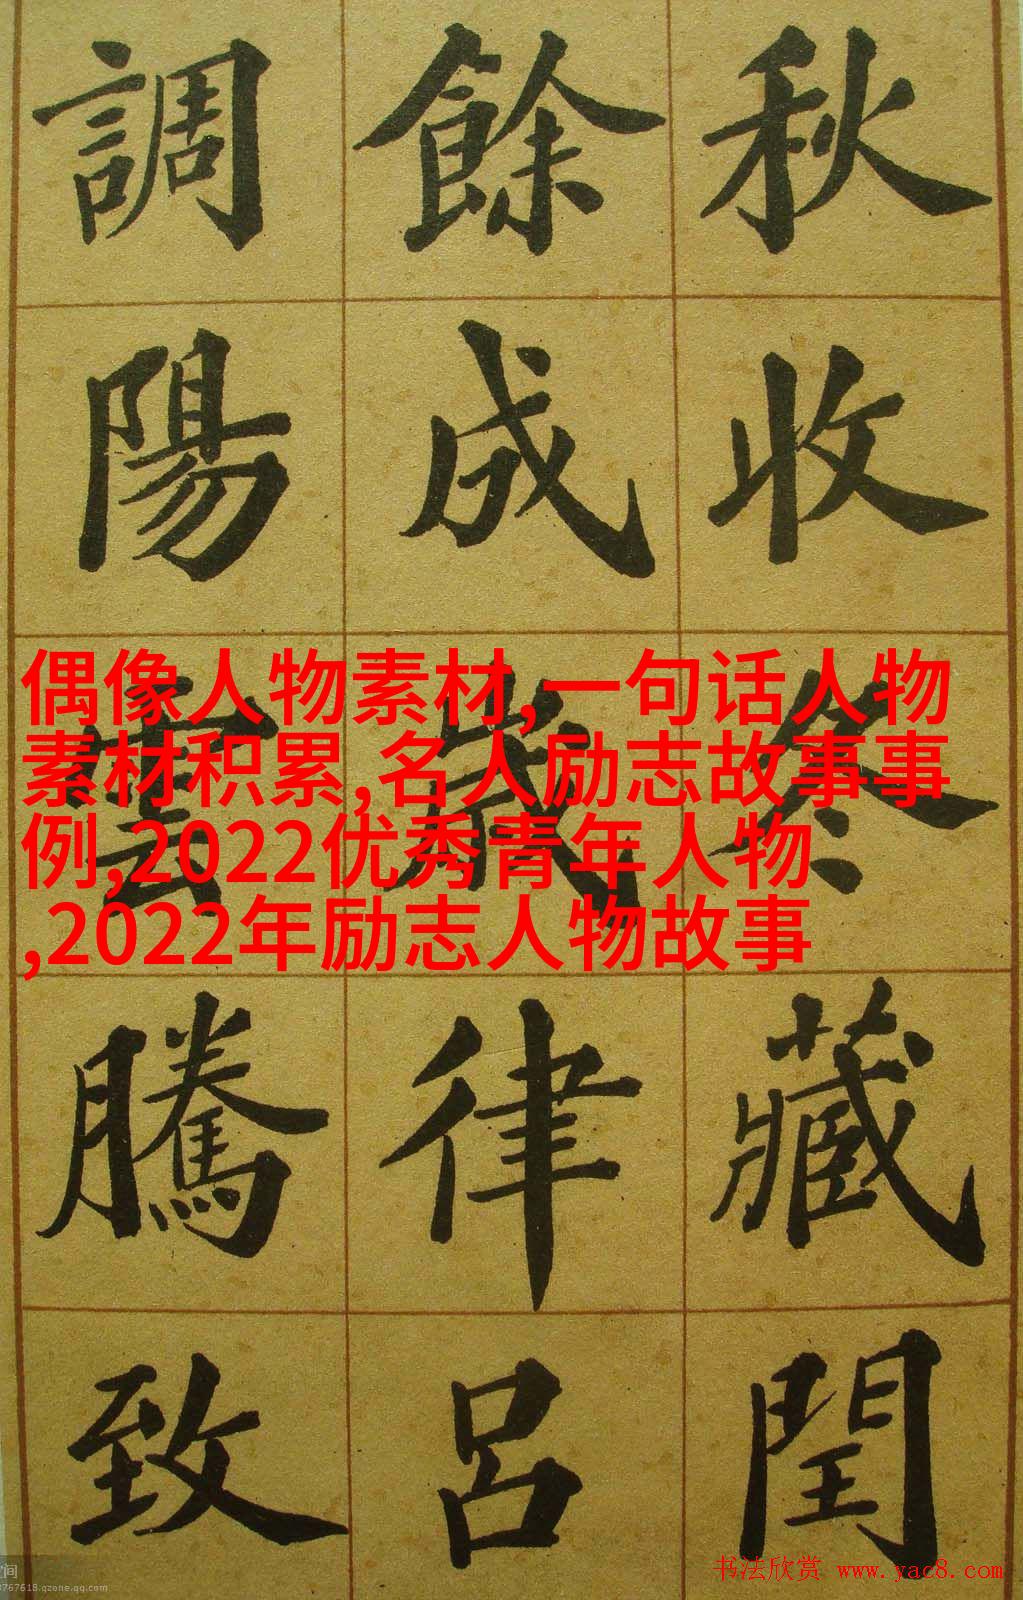 秋收冬藏閏
餘成歲律呂
調陽雲騰致
偶像人物素材,一句话人物
素材积累,名人励志故事事
例,2022优秀青年人物
,2022年励志人物故事
书法欣赏 www.yac8.com
空间
3767618.qzone.qq.com